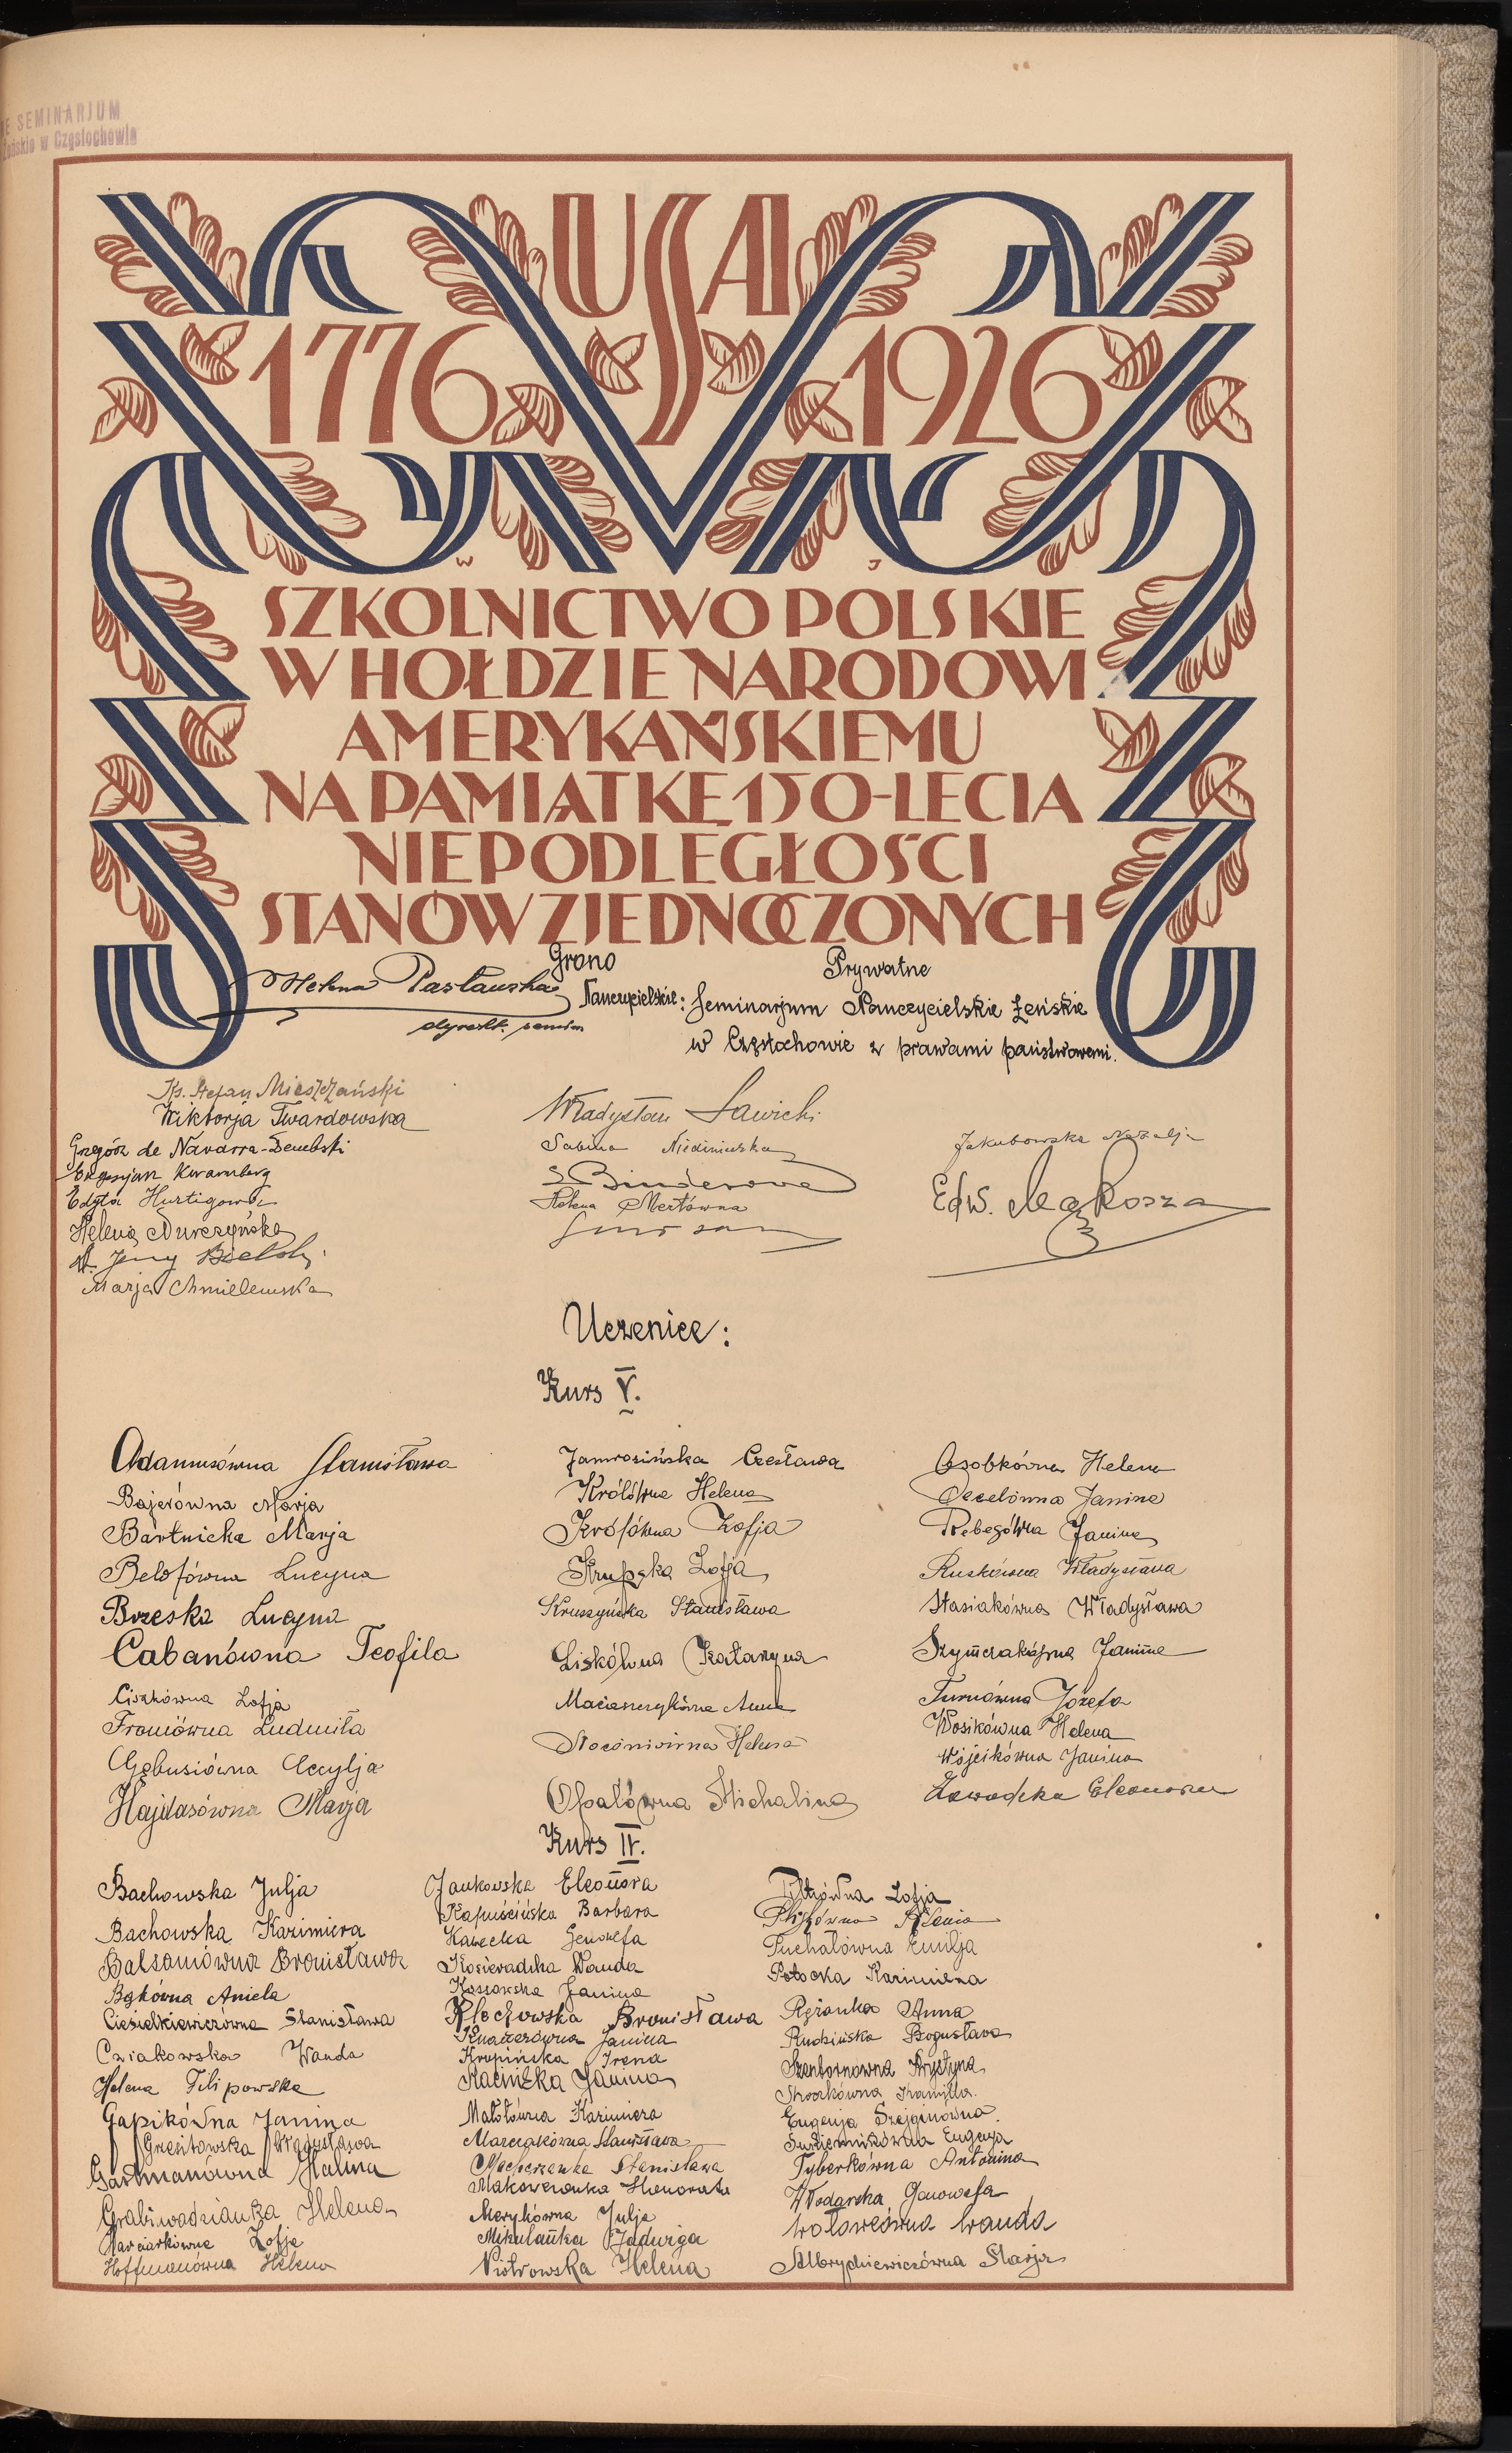 E SEMINARJUM
Żeńskie w Częstochowie
USA
1776 1926
W J
SZKOLNICTWO POLSKIE
W HOŁDZIE NARODOWI
AMERYKAŃSKIEMU
NA PAMIĄTKĘ 150-LECIA
NIEPODLEGŁOŚCI
STANÓW ZJEDNOCZONYCH
Grono
Nauczycielskie:
Prywatne
Seminarjum Nauczycielskie Żeńskie
w Częstochowie z prawami państwowemi.
Helena
Ks. Stefan Mieszczański
Wiktorja Twardowska
Grzegórz de Navarra-Dembski
Kwarnberg
Edyta Hurtigowa
Helena
Jerzy
Marja Chmielewska
Władysław Sawicki
Sabina
S. Binderowa
Helena Mertówna
Jakubowska Natalja
Edw. Mąkosza
Uczenice:
Kurs V.
Adamusówna Stanisława
Bajerówna Marja
Bartnicka Marja
Belofówna Lucyna
Brzeska Lucyna
Cabanówna Teofila
Ciszkówna Zofja
Froniówna Ludmiła
Gębusiówna Cecylja
Hajdasówna Marja
Jamrozińska Czesława
Królówna Helena
Królówna Zofja
Krupska Zofja
Kruszyńska Stanisława
Liskówna Katarzyna
Maciaszczykówna Anna
Helena
Opalówna Michalina
Osobkówna Helena
Janina
Rebegówna Janina
Ruskówna Władysława
Stasiakówna Władysława
Szymczakówna Janina
Turnówna Józefa
Wosikówna Helena
Wójcikówna Janina
Zawadzka Eleonora
Kurs IV.
Bachowska Julja
Bachowska Kazimiera
Balsamówna Bronisława
Bąkówna Aniela
Cieśielkiewiczówna Stanisława
Cziakowska Wanda
Helena Filipowska
Gapikówna Janina
Władysława
Gartmanówna Halina
Grabiwodzianka Helena
Harciarkówna Zofja
Hoffmanówna Helena
Jankowska Eleonora
Kapuścińska Barbara
Kawecka Genowefa
Kosieradzka Wanda
Kossowska Janina
Klechowska Bronisława
Knauerówna Janina
Krupińska Irena
Janina
Małotówna Kazimiera
Marczakówna Stanisława
Macherzanka Stanisława
Makowczonka Honorata
Marykówna Julja
Mikulanka Jadwiga
Piotrowska Helena
Piotrówna Zofja
Puchałówna Emilja
Potocka Kazimiera
Rężanka Anna
Rudzińska Bogusława
Szentornówna Krystyna
Eugenja Szejginówna
Eugenja
Tyberkówna Antonina
Włodarska Genowefa
Wołowcówna Wanda
Marja